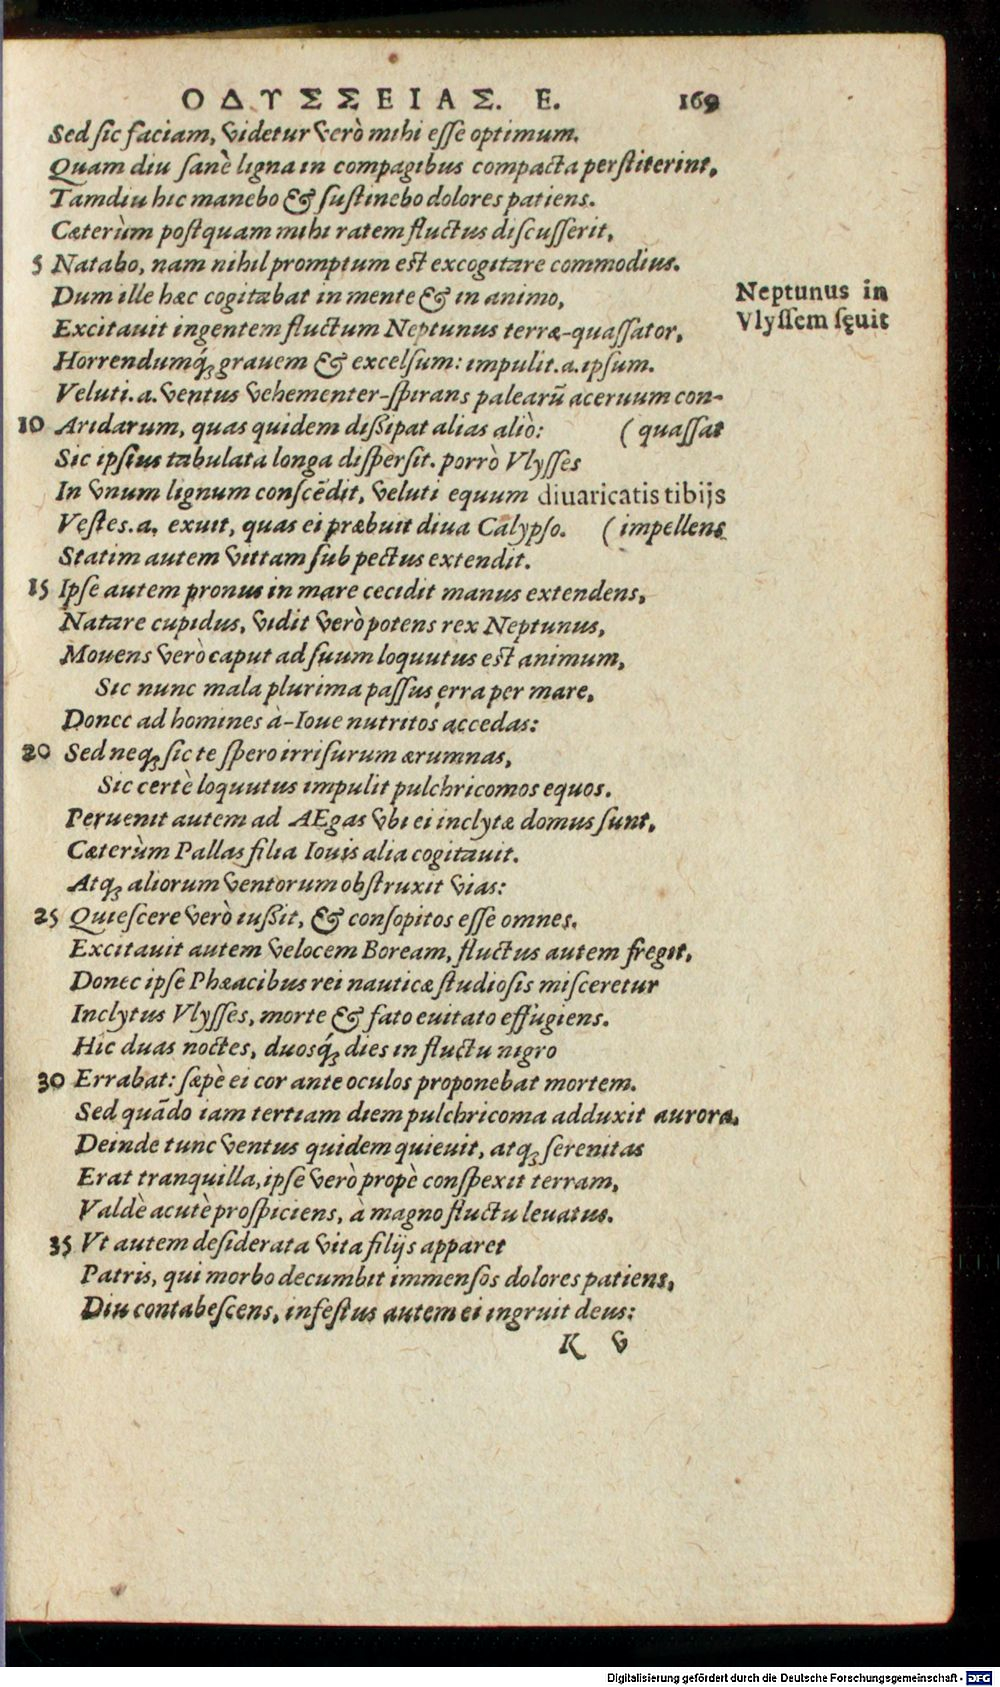 ΟΔΥΣΣΕΙΑΣ. Ε. 169
Sed sic faciam, videtur verò mihi esse optimum.
Quam diu sanè ligna in compagibus compacta perstiterint,
Tamdiu hic manebo & sustinebo dolores patiens.
Cæterùm postquam mihi ratem fluctus discusserit,
5 Natabo, nam nihil promptum est excogitare commodius.
Dum ille hæc cogitabat in mente & in animo,
Neptunus in
Excitauit ingentem fluctum Neptunus terræ-quassator,
Vlyssem sęuit
Horrendumq́; grauem & excelsum: impulit.a.ipsum.
Veluti.a. ventus vehementer-spirans palearū aceruum con-
10 Aridarum, quas quidem dissipat alias aliò: ( quassat
Sic ipsius tabulata longa dispersit. porrò Vlysses
In vnum lignum conscēdit, veluti equum diuaricatis tibijs
Vestes.a. exuit, quas ei præbuit diua Calypso. ( impellens
Statim autem vittam sub pectus extendit.
15 Ipse autem pronus in mare cecidit manus extendens,
Natare cupidus, vidit verò potens rex Neptunus,
Mouens verò caput ad suum loquutus est animum,
Sic nunc mala plurima passus erra per mare,
Donec ad homines à-Ioue nutritos accedas:
20 Sed neq; sic te spero irrisurum ærumnas,
Sic certè loquutus impulit pulchricomos equos.
Peruenit autem ad AEgas vbi ei inclytæ domus sunt,
Cæterùm Pallas filia Iouis alia cogitauit.
Atq; aliorum ventorum obstruxit vias:
25 Quiescere verò iussit, & consopitos esse omnes.
Excitauit autem velocem Boream, fluctus autem fregit,
Donec ipse Phæacibus rei nauticæ studiosis misceretur
Inclytus Vlysses, morte & fato euitato effugiens.
Hic duas noctes, duosq́; dies in fluctu nigro
30 Errabat: sæpè ei cor ante oculos proponebat mortem.
Sed quādo iam tertiam diem pulchricoma adduxit aurora.
Deinde tunc ventus quidem quieuit, atq; serenitas
Erat tranquilla, ipse verò propè conspexit terram,
Valdè acutè prospiciens, a magno fluctu leuatus.
35 Vt autem desiderata vita filijs apparet
Patris, qui morbo decumbit immensos dolores patiens,
Diu contabescens, infestus autem ei ingruit deus:
K v
Digitalisierung gefördert durch die Deutsche Forschungsgemeinschaft - DFG